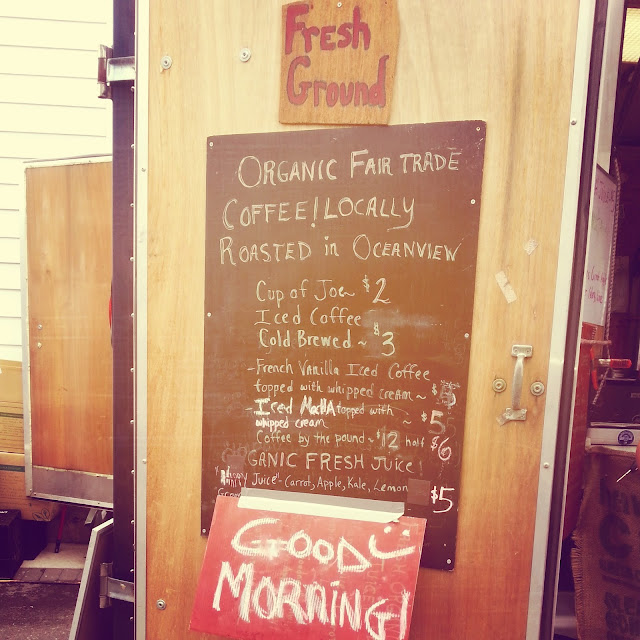 Fresh
Ground
ORGANIC FAIR TRADE
COFFEE! LOCALLY
ROASTED in OCEANVIEW
Cup of Joe ~ $2
Iced Coffee
Cold Brewed ~ $3
- French Vanilla Iced Coffee
topped with whipped cream ~ $
- Iced topped with
whipped cream ~ $5
Coffee by the pound ~ $12 half $6
GANIC FRESH JUICE!
Juice - Carrot, Apple, Kale, Lemon
$5
GOOD
MORNING!